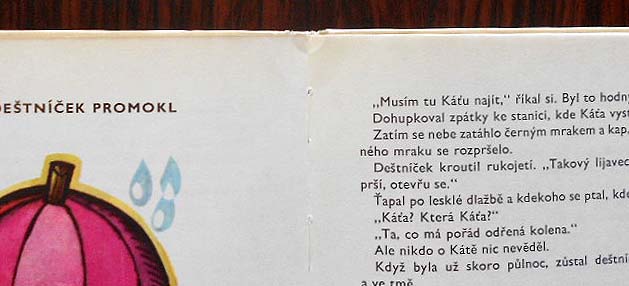 DEŠTNÍČEK PROMOKL
„Musím tu Káťu najít,“ říkal si. Byl to hodný
Dohupkoval zpátky ke stanici, kde Káťa vyst
Zatím se nebe zatáhlo černým mrakem a kap,
ného mraku se rozpršelo.
Deštníček kroutil rukojetí. „Takový lijavec
prší, otevřu se.“
Ťapal po lesklé dlažbě a kdekoho se ptal, kde
„Káťa? Která Káťa?“
„Ta, co má pořád odřená kolena.“
Ale nikdo o Kátě nic nevěděl.
Když byla už skoro půlnoc, zůstal deštní
a ve tmě